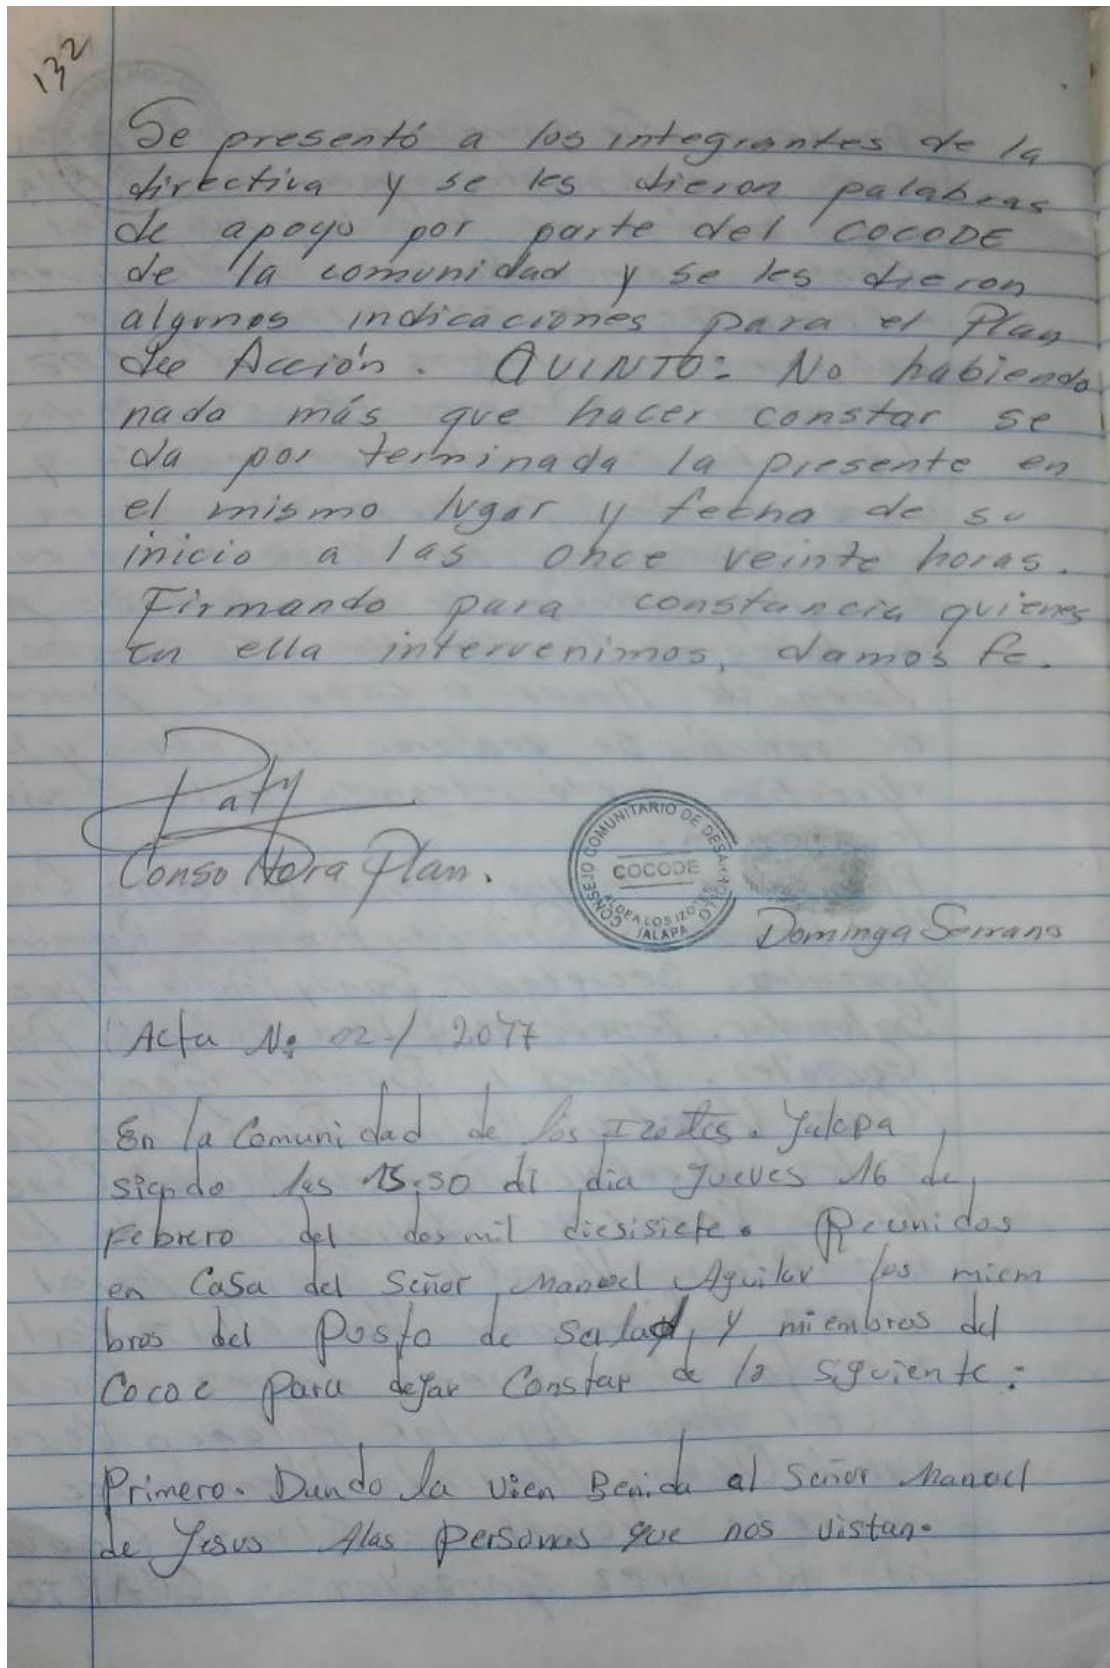 132
Se presentó a los integrantes de la
directiva y se les dieron palabras
de apoyo por parte del COCODE
de la comunidad y se les dieron
algunos indicaciones para el Plan
de Acción. QUINTO: No habiendo
nada más que hacer constar se
da por terminada la presente en
el mismo lugar y fecha de su
inicio a las once veinte horas.
Firmando para constancia quienes
en ella intervenimos, damos fe.
Paty
Plan.
CONSEJO COMUNITARIO DE DESARROLLO
COCODE
ALDEA LOS IZOTES
JALAPA
Dominga Serrano
Acta No 02/2017
En la Comunidad de los Izotes. Jalapa,
siendo las 15:30 del dia Jueves 16 de
Febrero del dos mil diesisiete. Reunidos
en Casa del Señor Manoel Aguilar los miem
bros del Posto de Salad, y miembros del
Cococ para dejar Constar de lo siguiente:
Primero. Dando la vien Benida al Señor Manoel
de Jesus Alas personas que nos vistan.